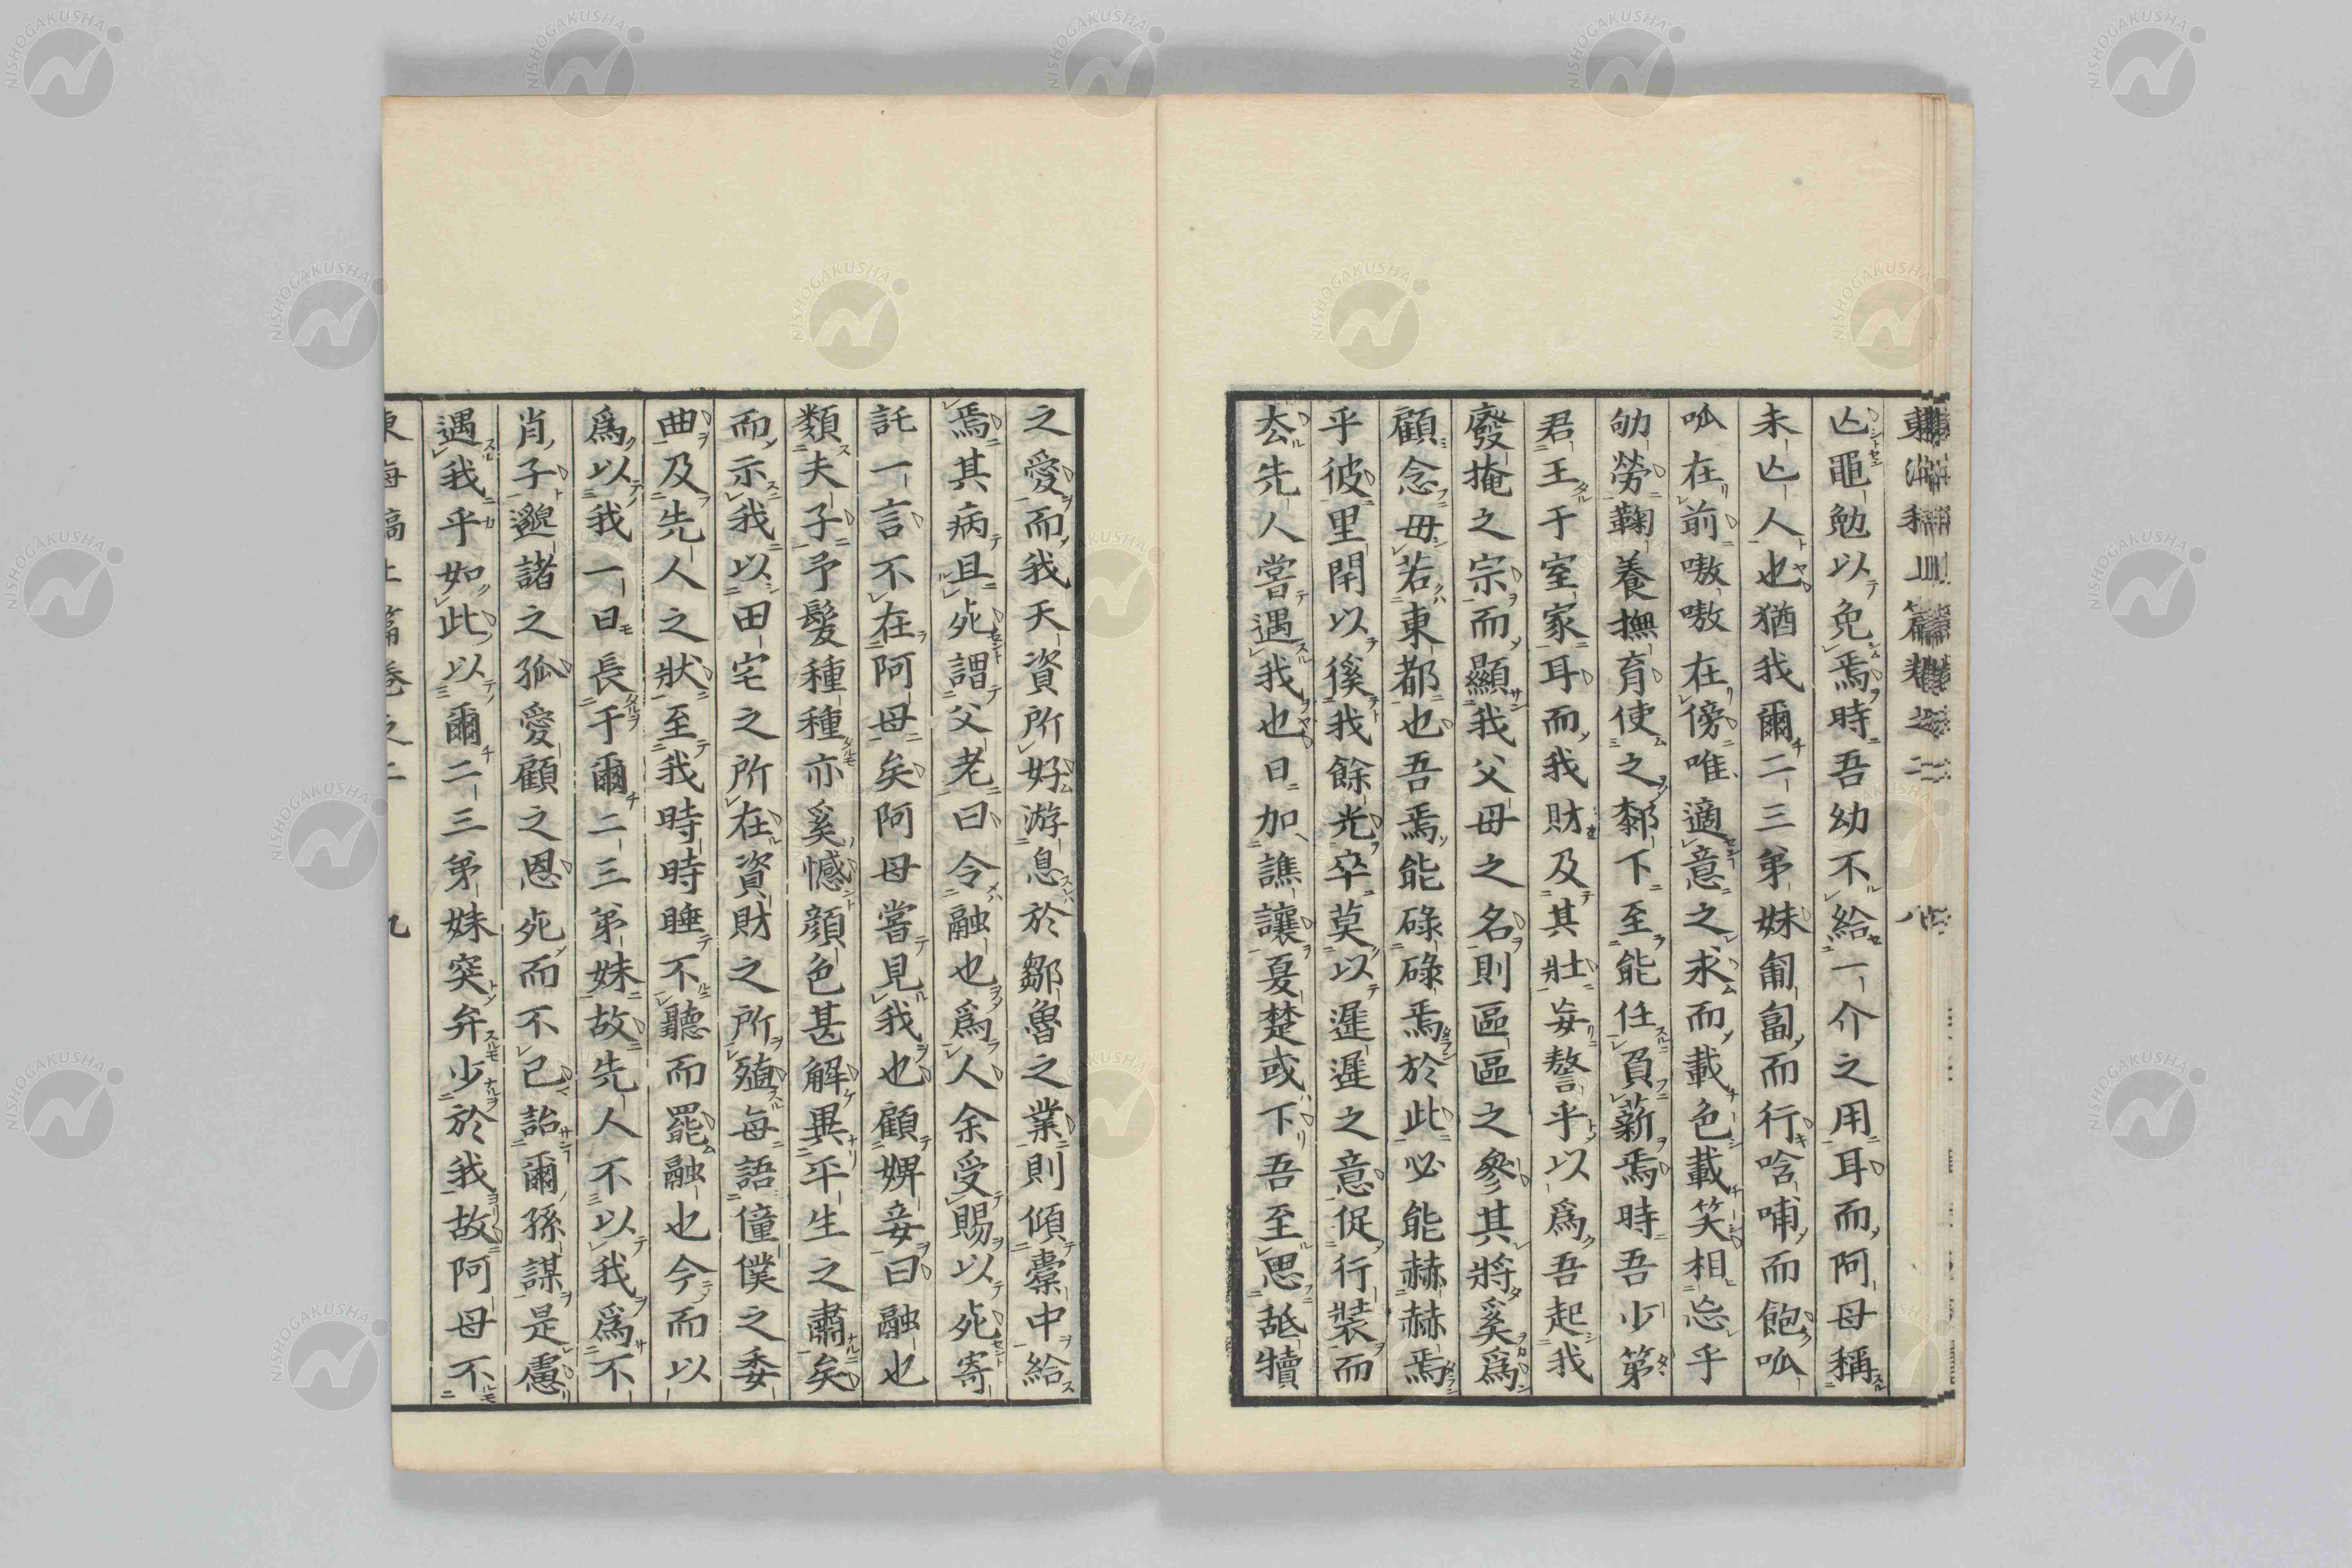 亾黽勉以免焉時吾幼不給一介之用耳而阿母稱
未亾人也猶我爾二三弟妹匍匐而行唅哺而飽呱
呱在前嗷嗷在傍唯適意之求而載色載笑相忘乎
劬勞鞠養撫育使之黎下至能任負薪焉時吾少第
君王于室家耳而我財及其壯妄謷乎以爲吾起我
廢掩之宗而顯我父母之名則區區之參其將奚爲
顧念毋若東都也吾焉能碌碌焉於此必能赫赫焉
乎彼里閈以徯我餘光卒莫以遲遲之意促行裝而
去先人嘗遇我也日加譙讓夏楚或下吾至思舐犢
之愛而我天資所好游息於鄒魯之業則傾橐中給
焉其病且死謂父老曰令融也爲人余受賜以死寄
託一言不在阿母矣阿母嘗見我也顧婢妾曰融也
類夫子予髮種種亦奚憾顏色甚解異平生之肅矣
而示我以田宅之所在資財之所殖每語僮僕之委
曲及先人之狀至我時時睡不聽而罷融也今而以
爲以我一日長于爾二三弟妹故先人不以我爲不
肖子邈諸之孤愛顧之恩死而不已詒爾孫謀是慮
遇我乎如此以爾二三弟妹突弁少於我故阿母不
東海稿上篇卷之二 九